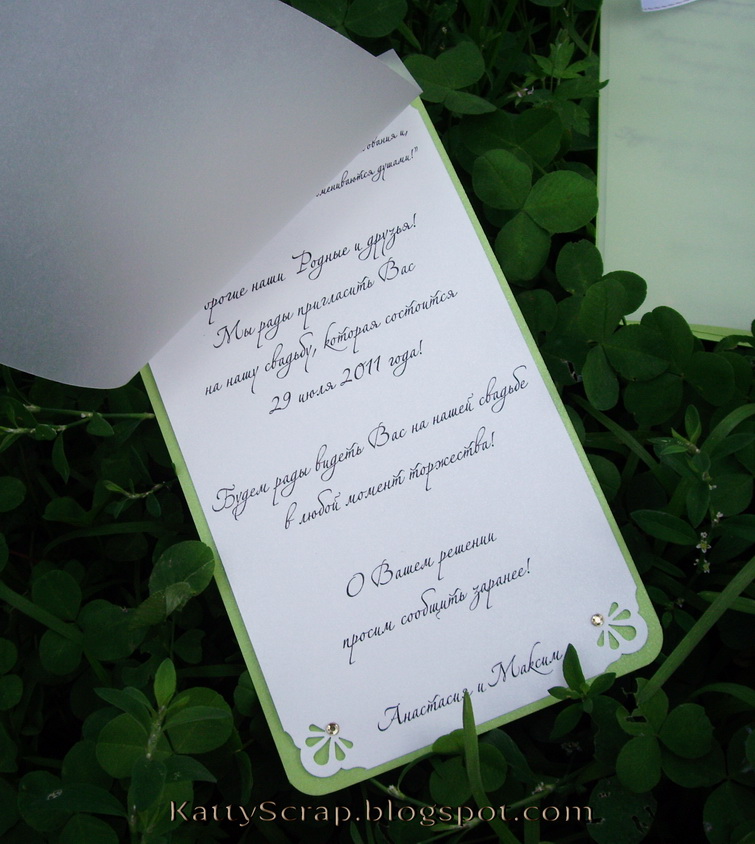 ования и,
мениваются душами!"
орогие наши Родные и друзья!
Мы рады пригласить Вас
на нашу свадьбу, которая состоится
29 июля 2011 года!
Будем рады видеть Вас на нашей свадьбе
в любой момент торжества!
О Вашем решении
просим сообщить заранее!
Анастасия и Максим
KattyScrap.blogspot.com